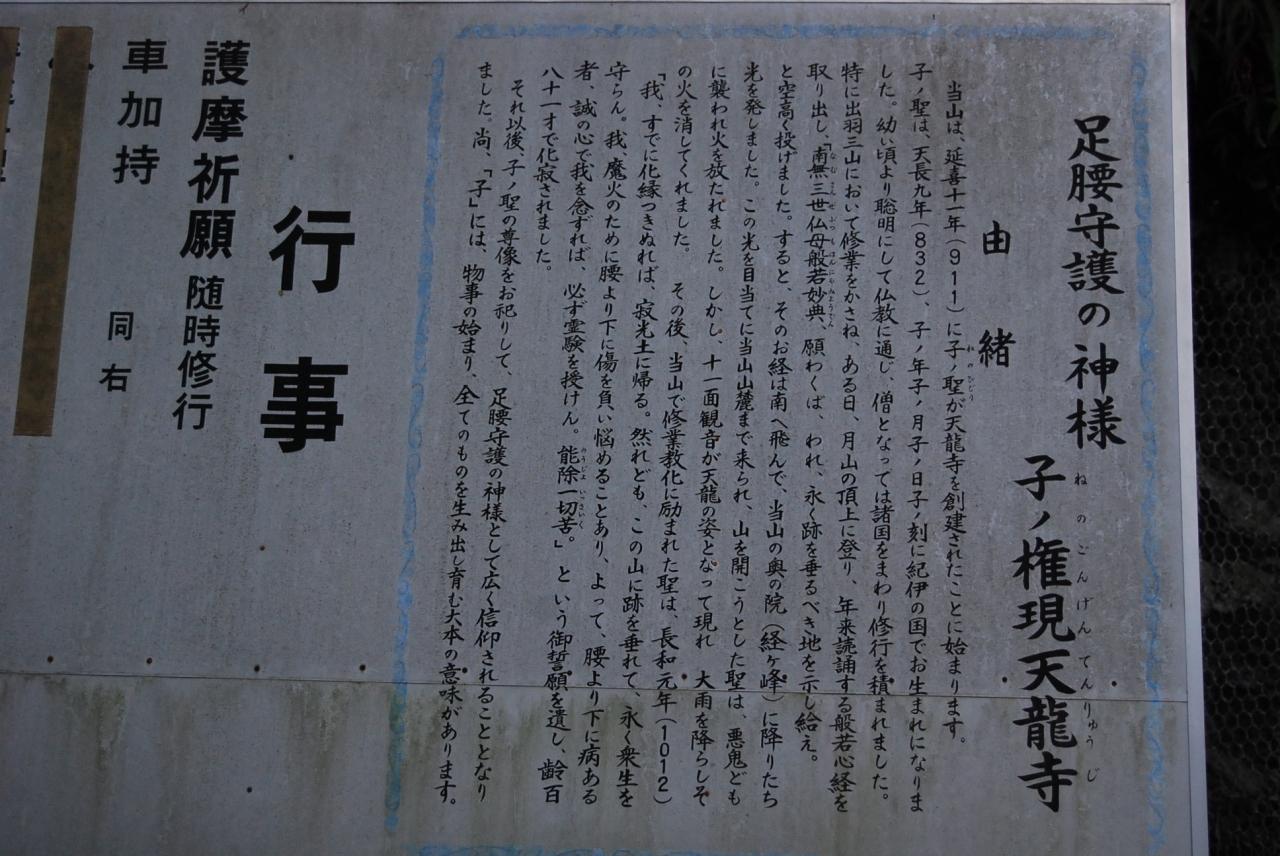 足腰守護の神様
子ノ権現天龍寺
ねのごんげんてんりゅうじ
由緒
当山は、延喜十一年(911)に子ノ聖が天龍寺を創建されたことに始まります。
ねのひじり
子ノ聖は、天長九年(832)、子ノ年子ノ月子ノ日子ノ刻に紀伊の国でお生まれになりま
した。幼い頃より聡明にして仏教に通じ、僧となっては諸国をまわり修行を積まれました。
特に出羽三山において修業をかさね、ある日、月山の頂上に登り、年来読誦する般若心経を
取り出し、「南無三世仏母般若妙典、願わくば、われ、永く跡を垂るべき地を示し給え。
なむさんぜぶつもはんにゃみょうてん
と空高く投げました。すると、そのお経は南へ飛んで、当山の奥の院(経ヶ峰)に降りたち
光を発しました。この光を目当てに当山山麓まで来られ、山を開こうとした聖は、悪鬼ども
に襲われ火を放たれました。しかし、十一面観音が天龍の姿となって現れ 大雨を降らしそ
の火を消してくれました。 その後、当山で修業教化に励まれた聖は、長和元年(1012)
「我、すでに化縁つきぬれば、寂光土に帰る。然れども、この山に跡を垂れて、永く衆生を
守らん。我、魔火のために腰より下に傷を負い悩めることあり、よって、腰より下に病ある
者、誠の心で我を念ずれば、必ず霊験を授けん。能除一切苦。」という御誓願を遺し、齢百
のうじょいっさいく
八十一才で化寂されました。
それ以後、子ノ聖の尊像をお祀りして、足腰守護の神様として広く信仰されることとなり
ました。尚、「子」には、物事の始まり、全てのものを生み出し育む大本の意味があります。
行事
護摩祈願 随時修行
車加持 同右